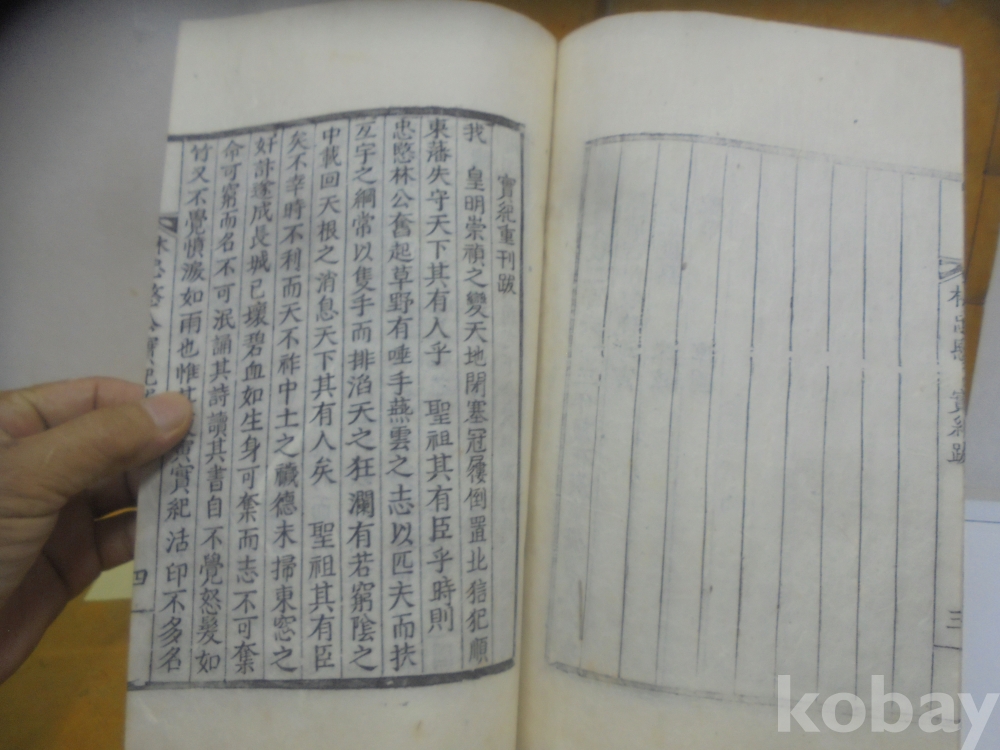 寶紀重刊跋
我 皇明崇禎之變天地閉塞冠屨倒置北猘犯順
東藩失守天下其有人乎 聖祖其有臣乎時則
忠愍林公奮起草野有唾手燕雲之志以匹夫而扶
亙宇之綱常以隻手而排滔天之狂瀾有若窮陰之
中載回天根之消息天下其有人矣 聖祖其有臣
矣不幸時不利而天不祚中土之穢德未掃東窓之
奸計遂成長城已壞碧血如生身可奪而志不可奪
命可窮而名不可泯誦其詩讀其書自不覺怒髮如
竹又不覺憤淚如雨也惟其 實紀活印不多名
林忠愍公實紀
四
實紀跋
三
kobay